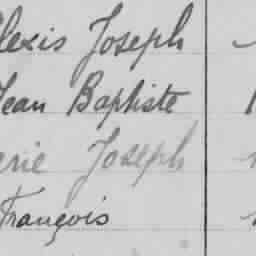 lexis Joseph
Jean Baptiste
erie Joseph
François